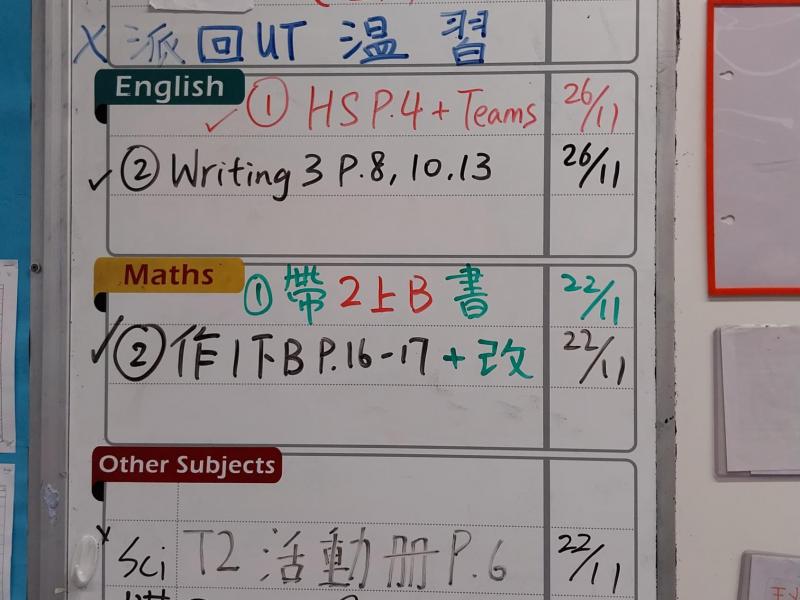 X 派回UT 温習
English
✓ ① HS P.4 + Teams 26/11
✓ ② Writing 3 P.8, 10, 13 26/11
Maths
① 帶2上B書 22/11
✓ ② 作1下B P.16-17 + 改 22/11
Other Subjects
x Sci T2 活動册 P.6 22/11